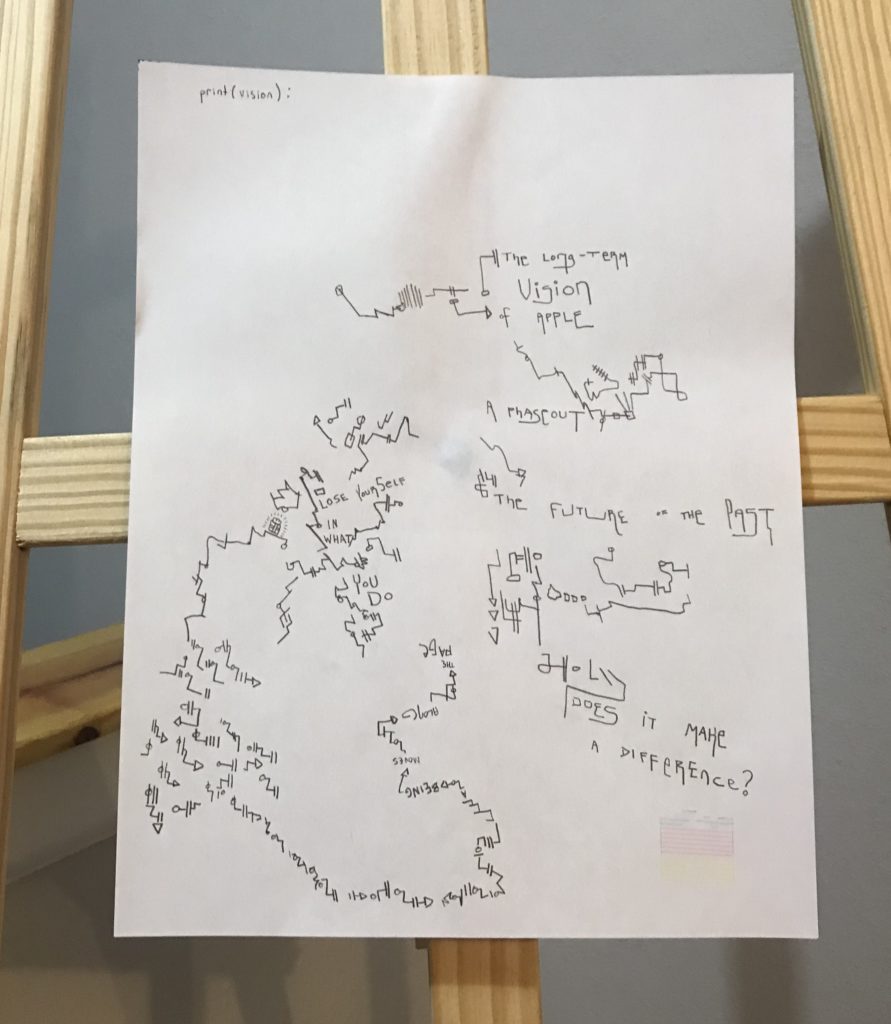 print(vision):
THE LONG-TERM
VISION
of APPLE
A PHASEOUT
LOSE YOURSELF
IN
WHAT
YOU
DO
THE FUTURE OF THE PAST
DOES IT MAKE
A DIFFERENCE?
BEING
MOVES
ALONG
THE
PAGE